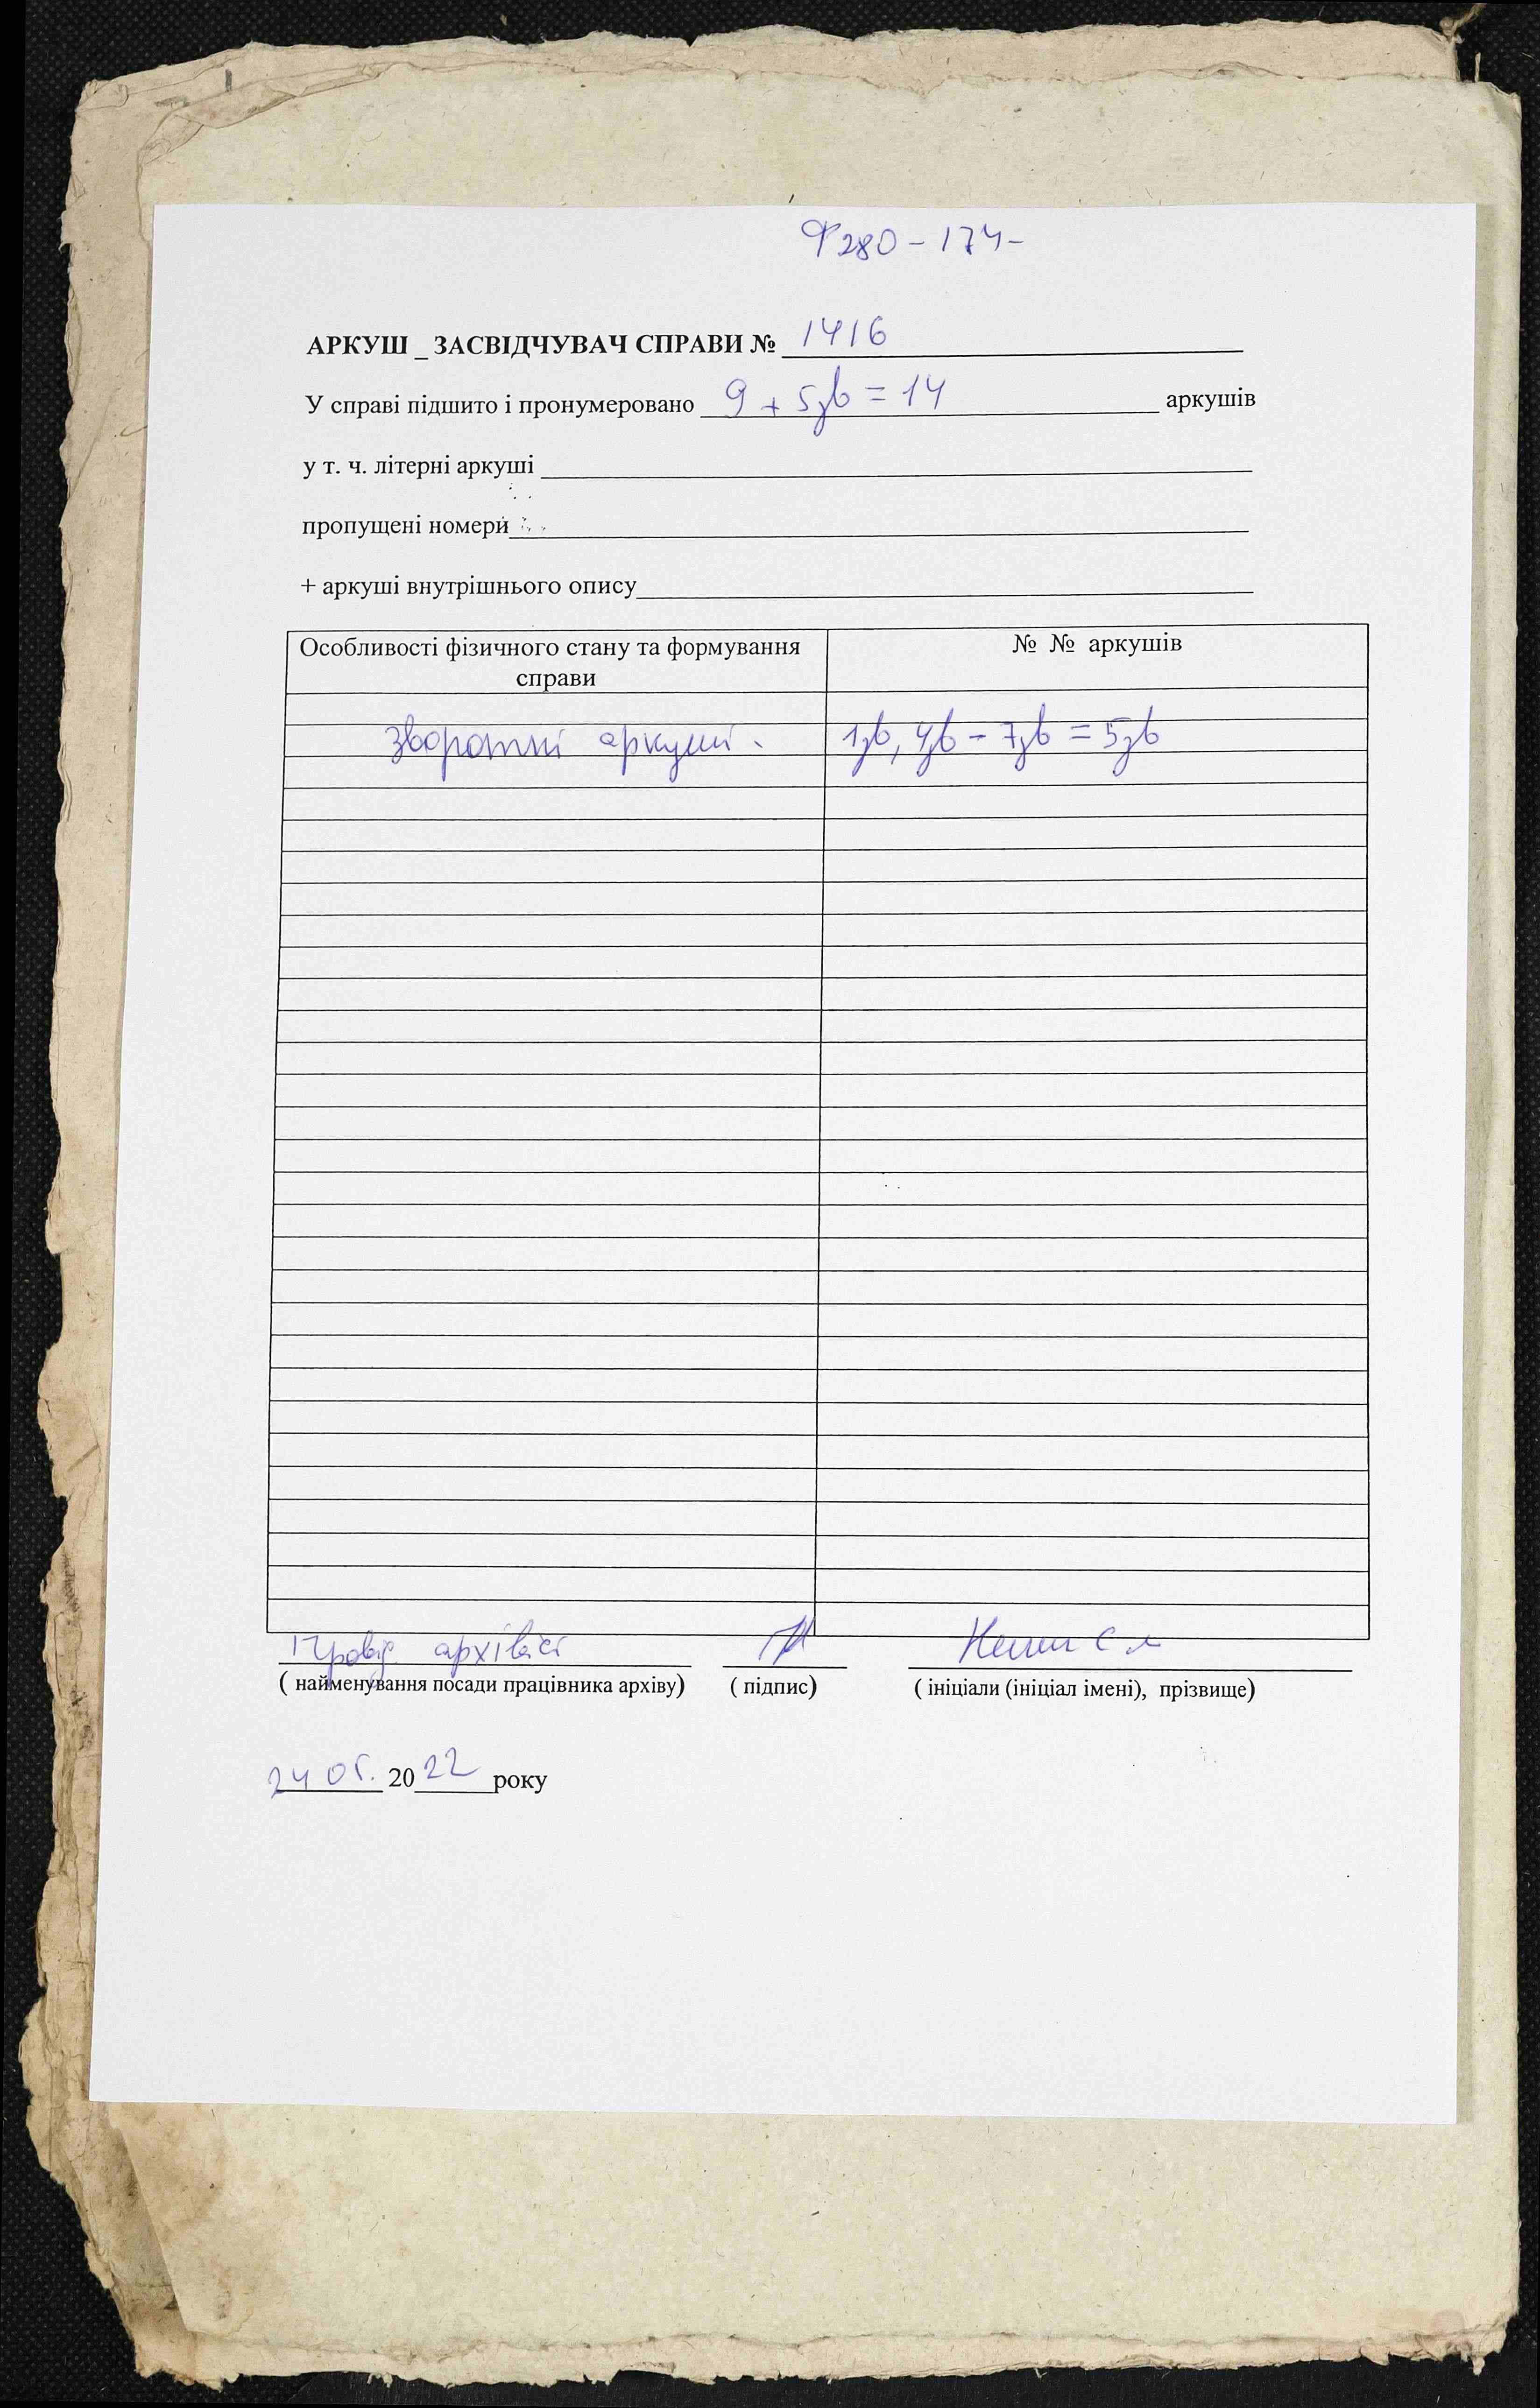 Ф 280 - 174 -
АРКУШ _ ЗАСВІДЧУВАЧ СПРАВИ № 1416
У справі підшито і пронумеровано 9 + 5зв = 14 аркушів
у т. ч. літерні аркуші
пропущені номери
+ аркуші внутрішнього опису
Особливості фізичного стану та формування справи № № аркушів
зворотні аркуші. 1зв, 4зв - 7зв = 5зв
Провід. архівіст
( найменування посади працівника архіву) ( підпис) ( ініціали (ініціал імені), прізвище)
24 05. 2022 року